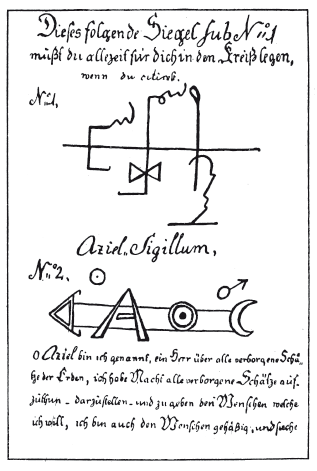 Dieses folgende Siegel sub Nro 1
mußt du allezeit für dich in den Kreiß legen,
wenn du citirst.
Nro 1,
Aziel Sigillum,
Nro 2.
A
Aziel bin ich genannt, ein Herr über alle verborgene Schä-
tze der Erden, ich habe Macht alle verborgene Schätze auf-
zuthun darzustellen und zu geben den Menschen welche
ich will, ich bin auch den Menschen gehäßig, und suche